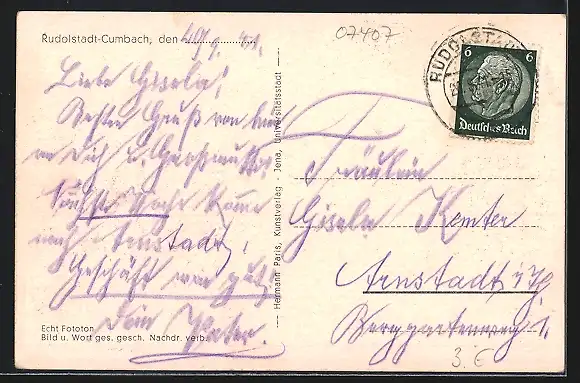 07407
Rudolstadt-Cumbach, den 20/9. 41.
Liebe Gisela!
Besten Gruß von hier
an Dich u. Großmutter
Woche komme
nach Arnstadt,
Geschäft war gut,
Dein Vater.
Echt Fototon
Bild u. Wort ges. gesch. Nachdr. verb.
Hermann Paris, Kunstverlag Jena, Universitätsstadt
RUDOLSTADT
6 6
Deutsches Reich
Fräulein
Gisela Kemter
Arnstadt i/Th
Berggartenweg 1.
3.€